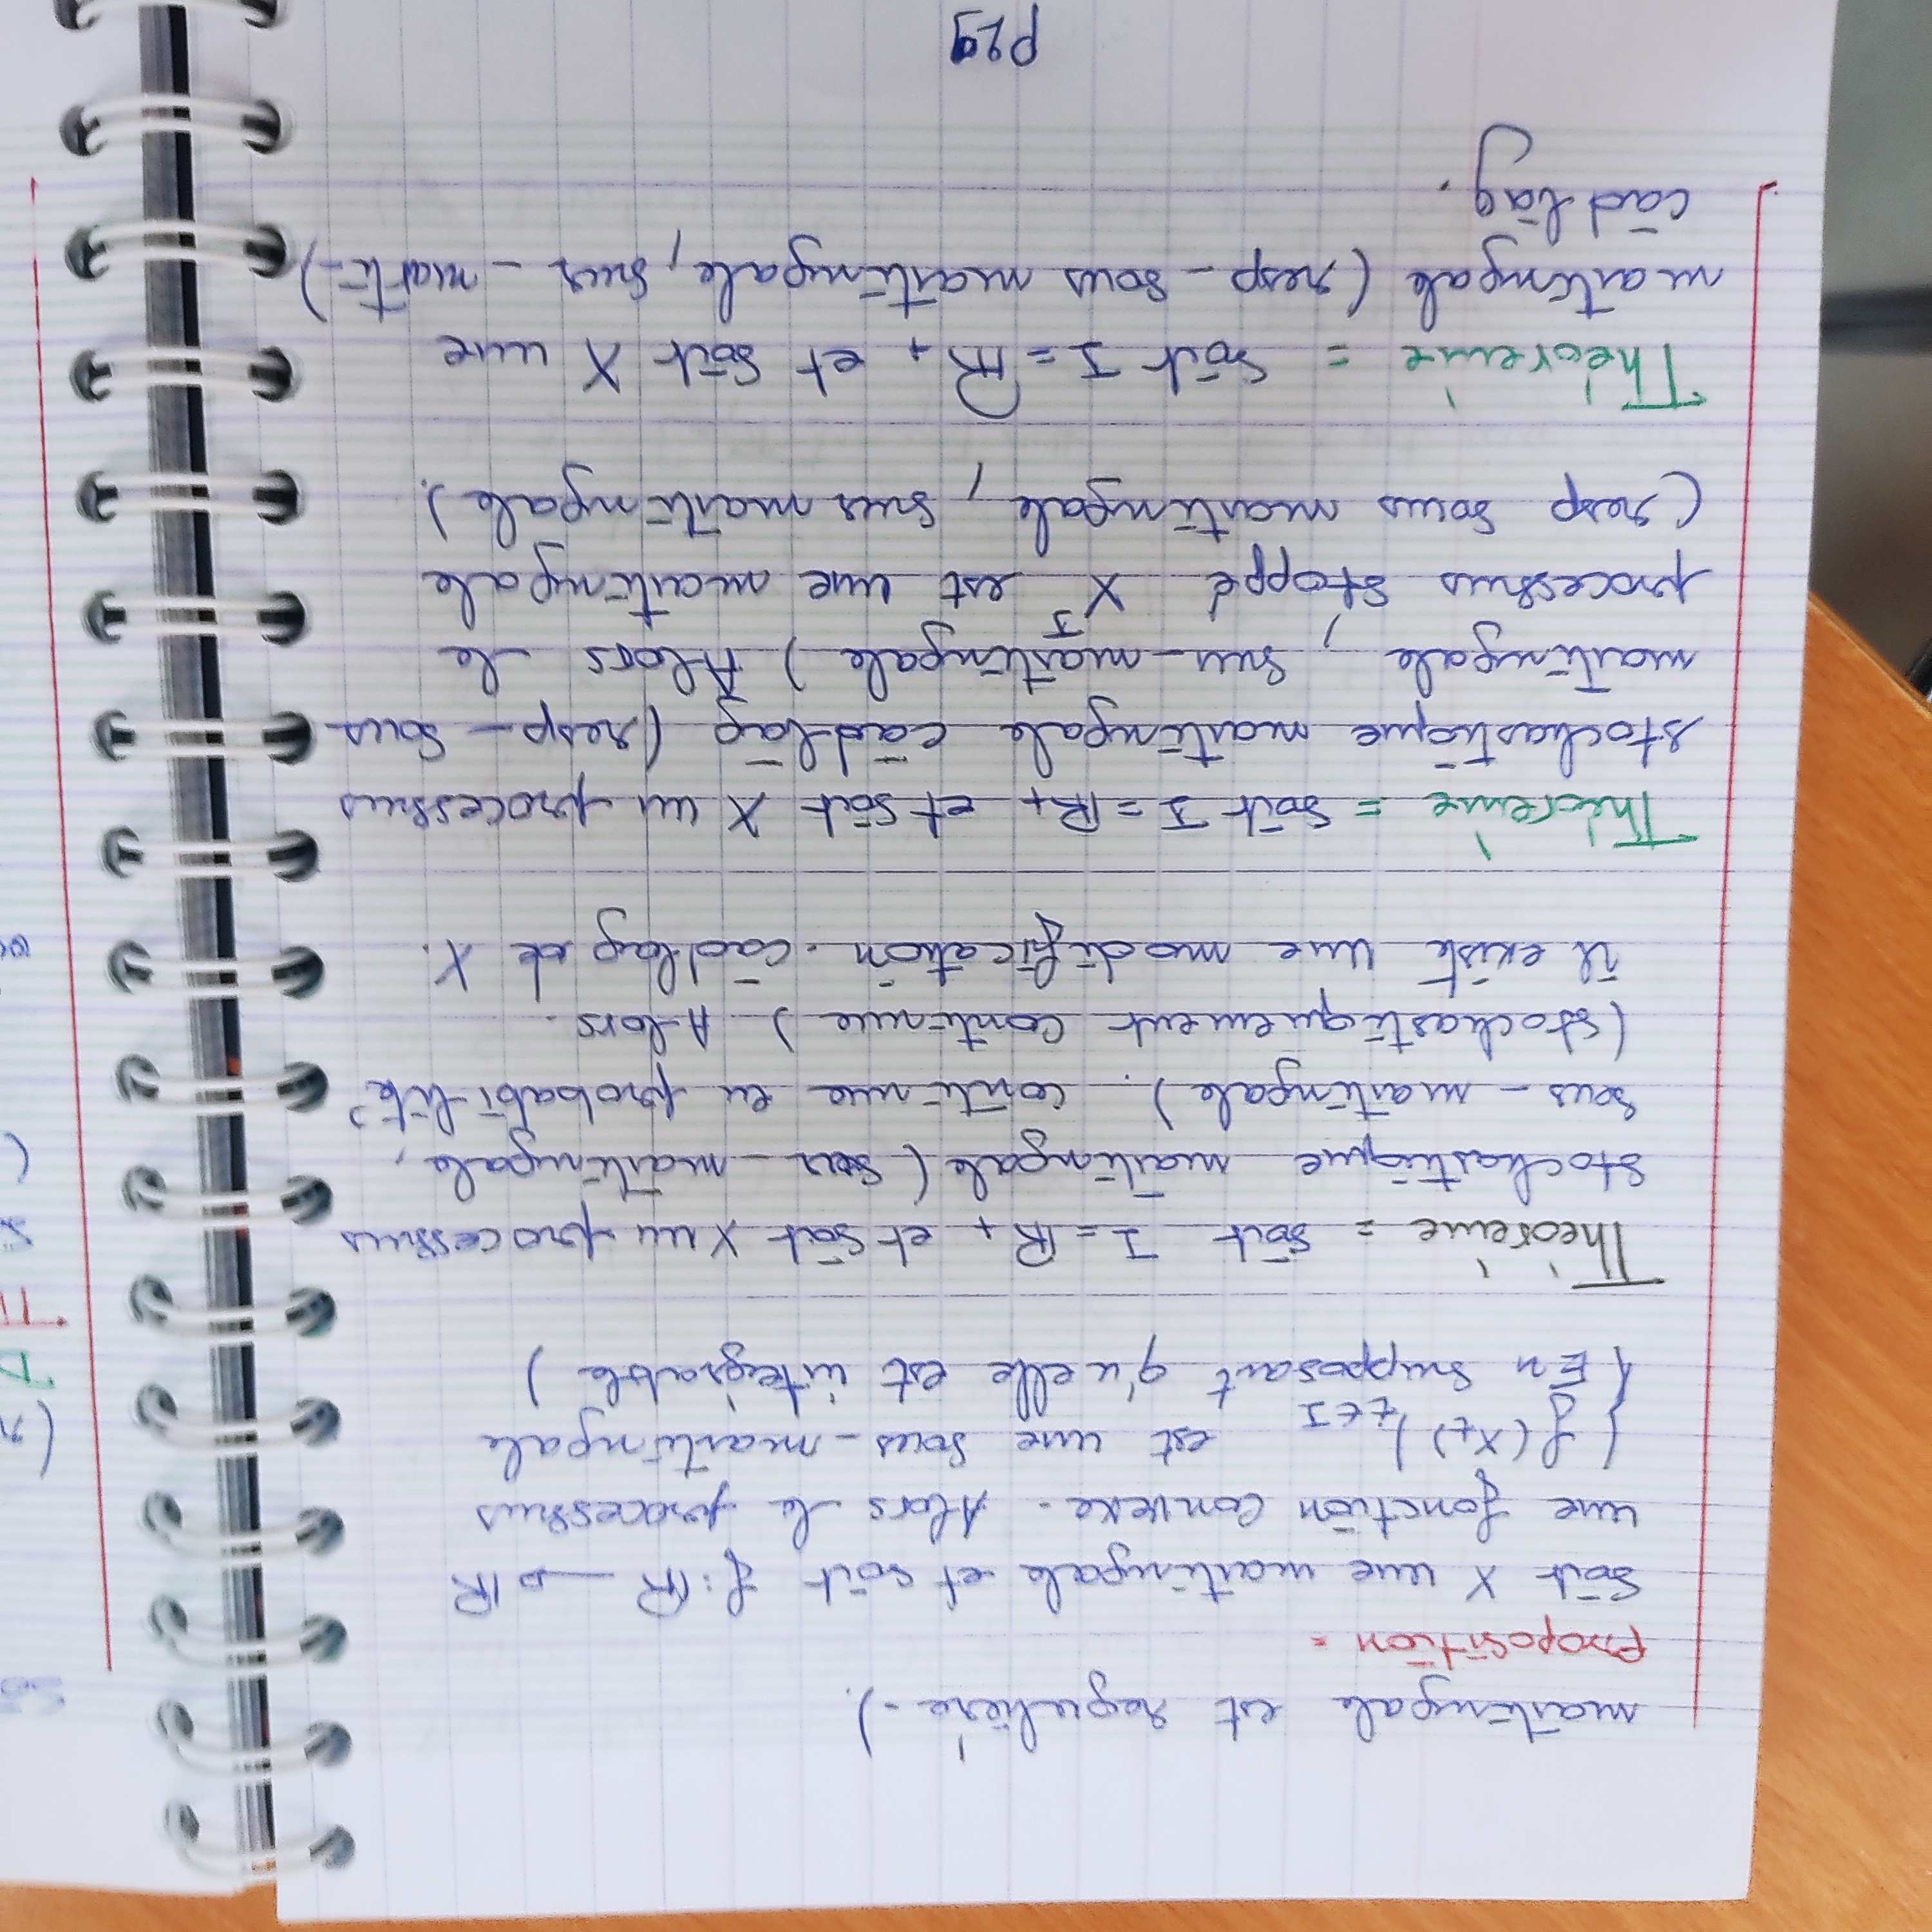 martingale est regulière.).
proposition =
Soit X une martingale et soit f : ℝ → ℝ
une fonction convexe. Alors le processus
(f(Xt))t∈I est une sous-martingale
(En supposant qu'elle est intégrable)
Théorème = soit I = ℝ+ et soit X un processus
stochastique martingale (sur-martingale,
sous-martingale). continue en probabilité
(stochastiquement continue) Alors.
il existe une modification. càdlag de X.
Théorème = soit I = ℝ+ et soit X un processus
stochastique martingale càdlàg (resp- sous-
martingale, sur-martingale) Alors le
processus stoppé X^J est une martingale
(resp sous martingale, sur martingale).
Théorème = soit I = ℝ+ et soit X une
martingale (resp- sous martingale, sur-marti-)
càdlàg.
P29